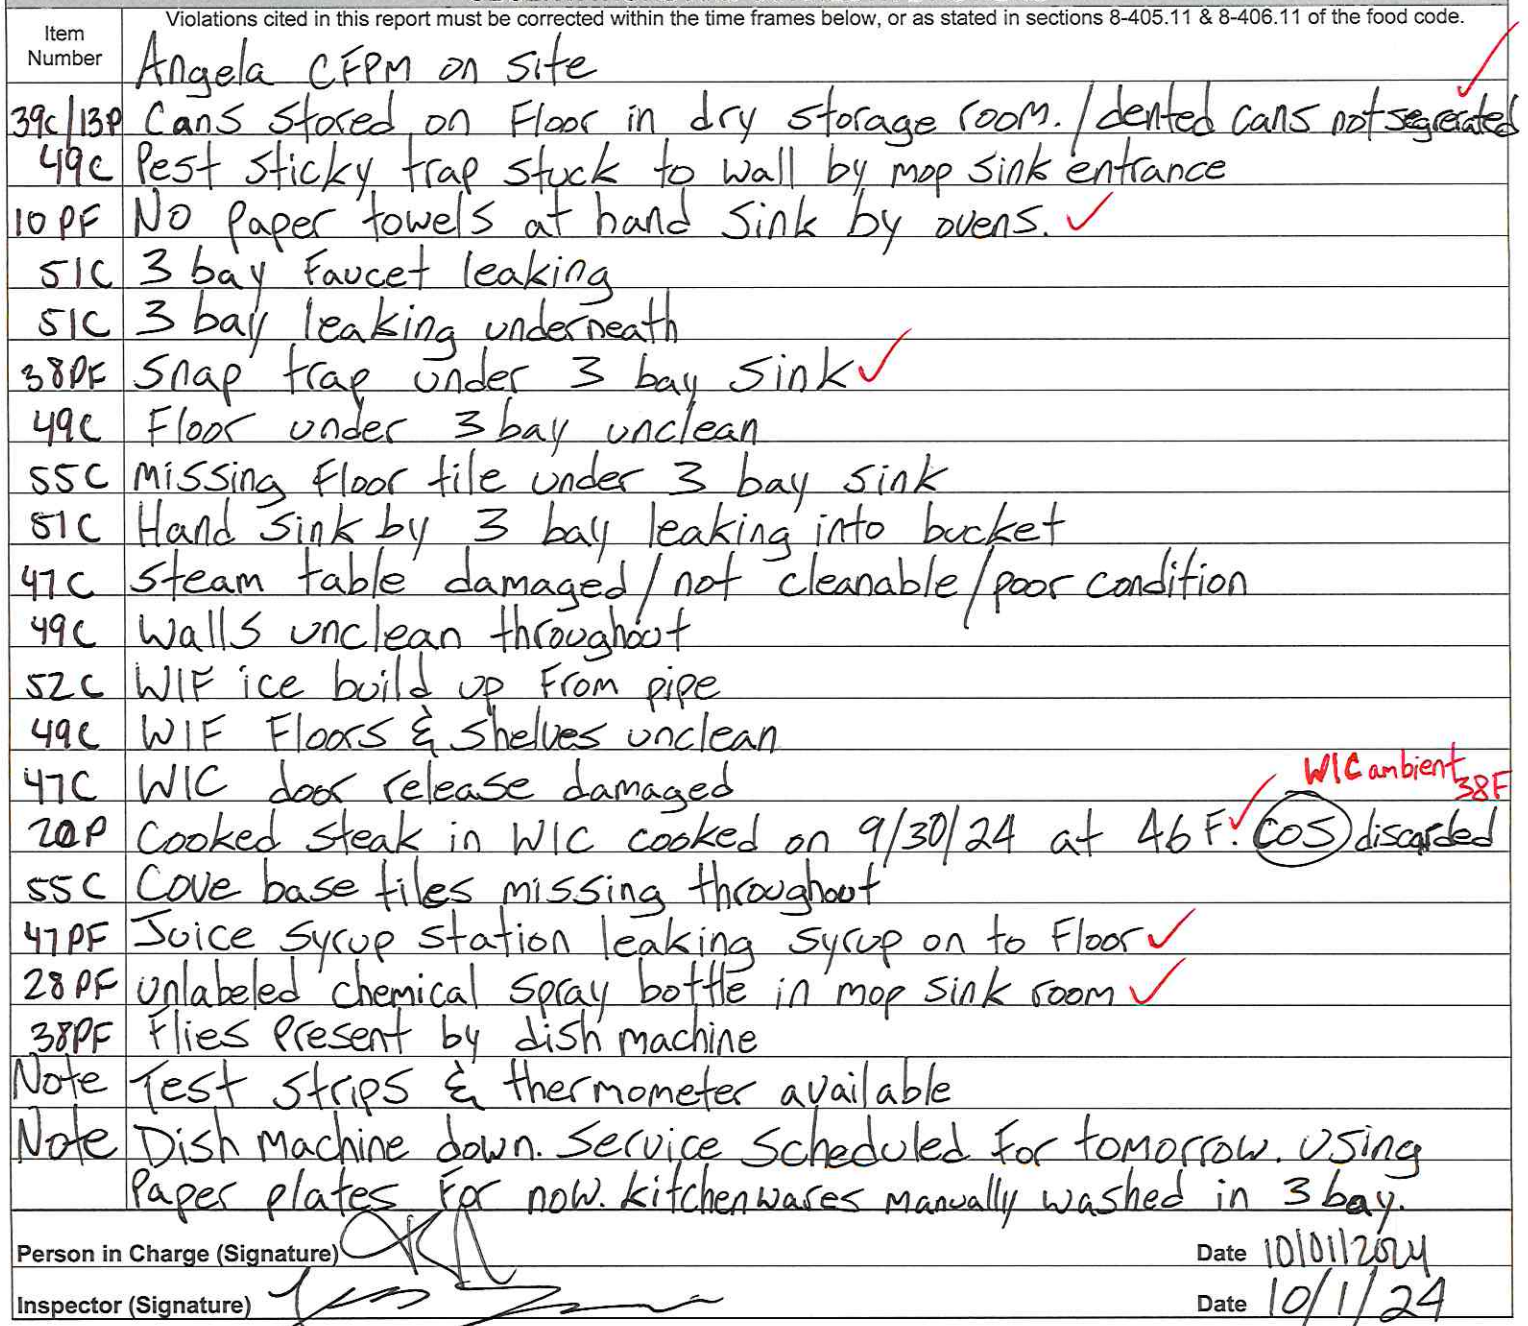 Violations cited in this report must be corrected within the time frames below, or as stated in sections 8-405.11 & 8-406.11 of the food code.
Item Number
Angela CFPM on site
39C/13P Cans stored on Floor in dry storage room. / dented cans not segregated ✓
49C Pest sticky trap stuck to wall by mop sink entrance
10 PF No Paper towels at hand sink by ovens. ✓
51C 3 bay Faucet leaking
51C 3 bay leaking underneath
38PF Snap trap under 3 bay sink ✓
49C Floor under 3 bay unclean
55C Missing Floor tile under 3 bay sink
51C Hand sink by 3 bay leaking into bucket
47C Steam table damaged/not cleanable/poor condition
49C Walls unclean throughout
52C WIF ice build up From pipe
49C WIF Floors & shelves unclean
47C WIC door release damaged
WIC ambient 38F
20P Cooked steak in WIC cooked on 9/30/24 at 46 F. ✓ COS discarded
55C Cove base tiles missing throughout
47PF Juice Syrup station leaking syrup on to Floor ✓
28 PF Unlabeled chemical spray bottle in mop sink room ✓
38PF Flies Present by dish machine
Note Test strips & thermometer available
Note Dish Machine down. Service Scheduled For tomorrow. Using
Paper plates For now. Kitchenwares Manually washed in 3 bay.
Person in Charge (Signature) Date 10/01/2024
Inspector (Signature) Date 10/1/24